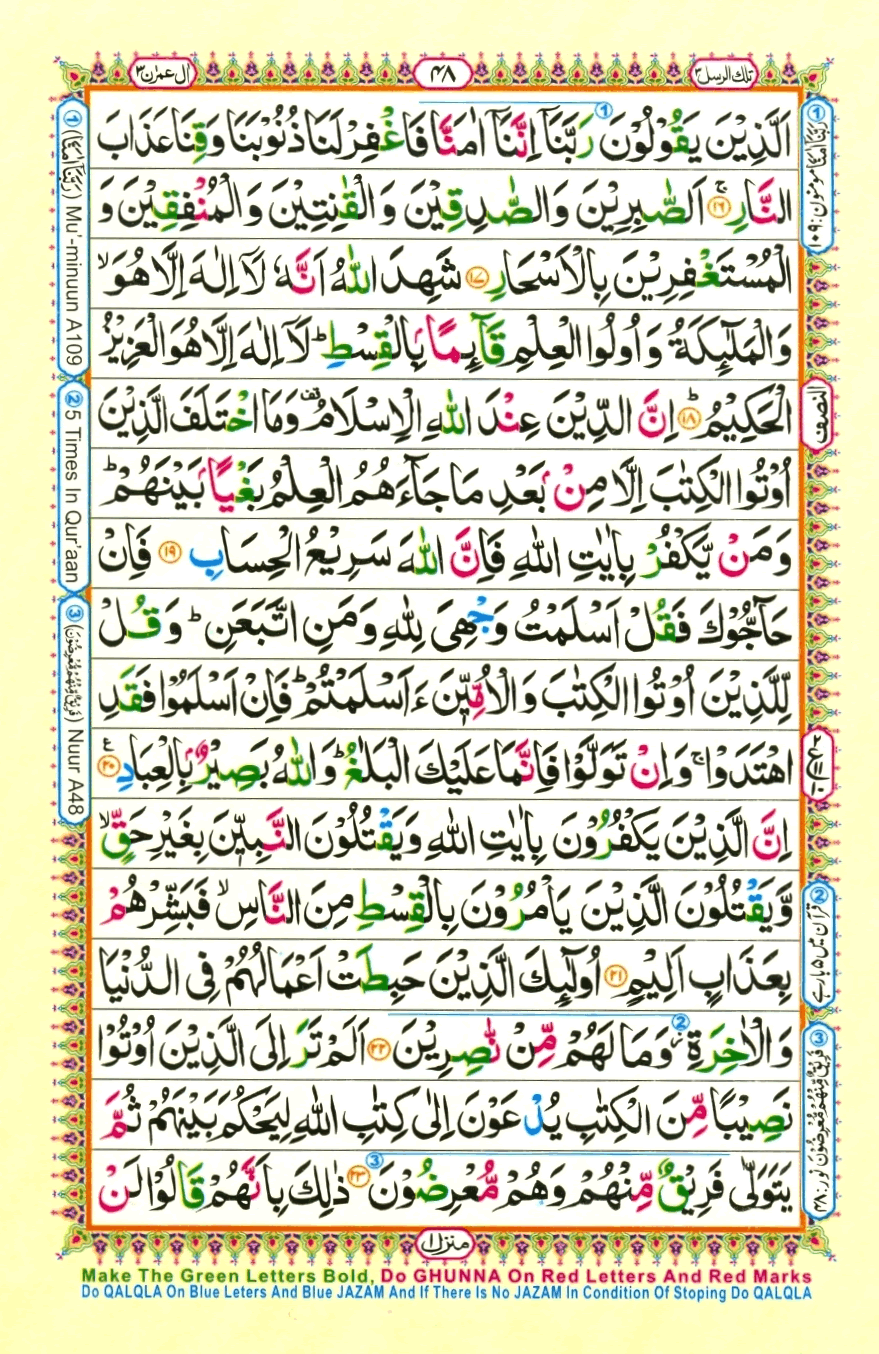 تلك الرسل ٣
٤٨
اٰل عمرٰن ٣
اَلَّذِيْنَ يَقُوْلُوْنَ رَبَّنَاۤ اِنَّنَاۤ اٰمَنَّا فَاغْفِرْ لَنَا ذُنُوْبَنَا وَقِنَا عَذَابَ
النَّارِۚ ۱۶ اَلصّٰبِرِيْنَ وَالصّٰدِقِيْنَ وَالْقٰنِتِيْنَ وَالْمُنْفِقِيْنَ وَ
الْمُسْتَغْفِرِيْنَ بِالْاَسْحَارِ ۱۷ شَهِدَ اللّٰهُ اَنَّهٗ لَاۤ اِلٰهَ اِلَّا هُوَۙ
وَالْمَلٰٓئِكَةُ وَاُولُوا الْعِلْمِ قَآئِمًاۢ بِالْقِسْطِؕ لَاۤ اِلٰهَ اِلَّا هُوَ الْعَزِيْزُ
الْحَكِيْمُؕ ۱۸ اِنَّ الدِّيْنَ عِنْدَ اللّٰهِ الْاِسْلَامُ وَمَا اخْتَلَفَ الَّذِيْنَ
اُوْتُوا الْكِتٰبَ اِلَّا مِنْۢ بَعْدِ مَا جَآءَهُمُ الْعِلْمُ بَغْيًاۢ بَيْنَهُمْؕ
وَمَنْ يَّكْفُرْ بِاٰيٰتِ اللّٰهِ فَاِنَّ اللّٰهَ سَرِيْعُ الْحِسَابِ ۱۹ فَاِنْ
حَآجُّوْكَ فَقُلْ اَسْلَمْتُ وَجْهِيَ لِلّٰهِ وَمَنِ اتَّبَعَنِؕ وَقُلْ
لِّلَّذِيْنَ اُوْتُوا الْكِتٰبَ وَالْاُمِّيّٖنَ ءَاَسْلَمْتُمْؕ فَاِنْ اَسْلَمُوْا فَقَدِ
اهْتَدَوْاۚ وَاِنْ تَوَلَّوْا فَاِنَّمَا عَلَيْكَ الْبَلٰغُؕ وَاللّٰهُ بَصِيْرٌۢ بِالْعِبَادِ ۲۰
اِنَّ الَّذِيْنَ يَكْفُرُوْنَ بِاٰيٰتِ اللّٰهِ وَيَقْتُلُوْنَ النَّبِيّٖنَ بِغَيْرِ حَقٍّۙ
وَّيَقْتُلُوْنَ الَّذِيْنَ يَاْمُرُوْنَ بِالْقِسْطِ مِنَ النَّاسِۙ فَبَشِّرْهُمْ
بِعَذَابٍ اَلِيْمٍ ۲۱ اُولٰٓئِكَ الَّذِيْنَ حَبِطَتْ اَعْمَالُهُمْ فِي الدُّنْيَا
وَالْاٰخِرَةِ وَمَا لَهُمْ مِّنْ نّٰصِرِيْنَ ۲۲ اَلَمْ تَرَ اِلَى الَّذِيْنَ اُوْتُوْا
نَصِيْبًا مِّنَ الْكِتٰبِ يُدْعَوْنَ اِلٰى كِتٰبِ اللّٰهِ لِيَحْكُمَ بَيْنَهُمْ ثُمَّ
يَتَوَلّٰى فَرِيْقٌ مِّنْهُمْ وَهُمْ مُّعْرِضُوْنَ ۲۳ ذٰلِكَ بِاَنَّهُمْ قَالُوْا لَنْ
منزل ١
① (رَبَّنَا اٰمَنَّا) Mu'-minuun A 109
② 5 Times In Qur'aan
③ (فَرِيْقٌ مِّنْهُمْ مُّعْرِضُوْنَ) Nuur A48
① رَبَّنَا اٰمَنَّا مومنون: ۱۰۹
النصف
② قرآن میں ۵ بار ہے
③ فَرِيْقٌ مِّنْهُمْ مُّعْرِضُوْنَ نور: ۴۸
Make The Green Letters Bold, Do GHUNNA On Red Letters And Red Marks
Do QALQLA On Blue Leters And Blue JAZAM And If There Is No JAZAM In Condition Of Stoping Do QALQLA